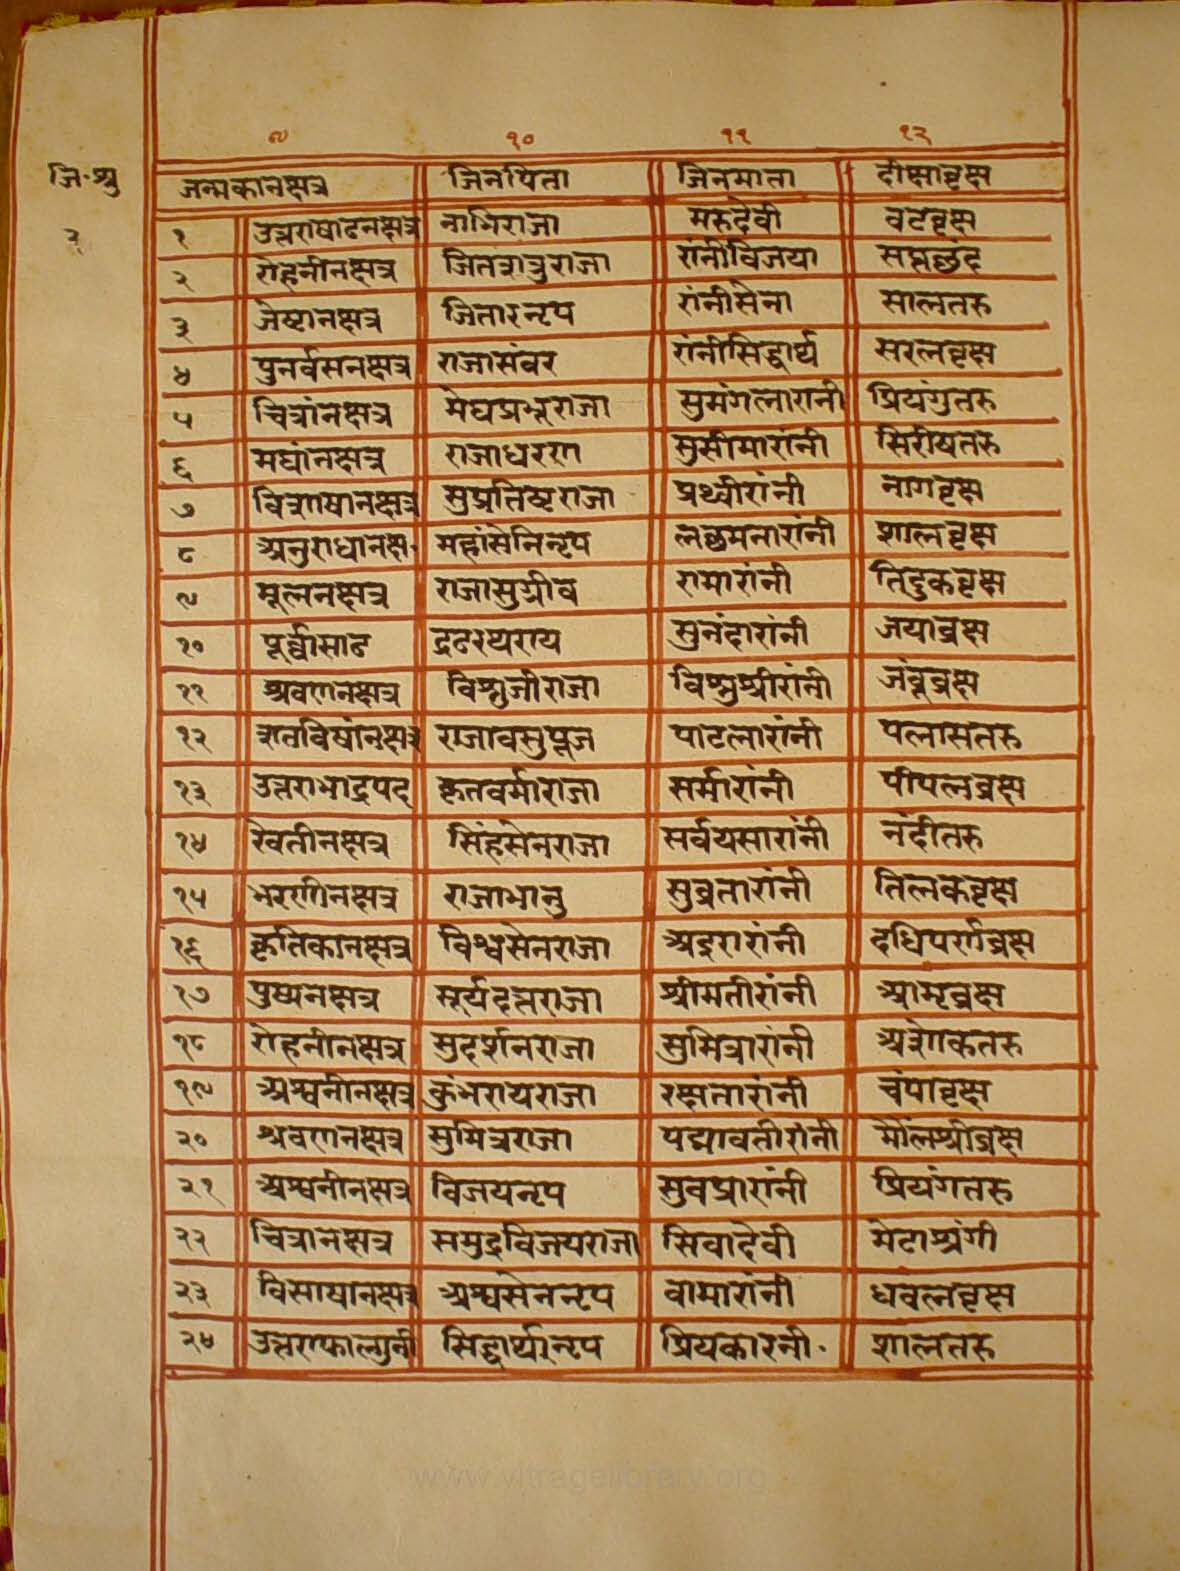 ९ १० ११ १२
जि·श्रु
२
जन्मकानक्षत्र जिनपिता जिनमाता दीक्षावृक्ष
१ उत्तराषाढनक्षत्र नाभिराजा मरुदेवी वटवृक्ष
२ रोहनीनक्षत्र जितशत्रुराजा रांनीविजया सप्तछंद
३ जेष्टानक्षत्र जितारनृप रांनीसेना सालतरु
४ पुनर्वसनक्षत्र राजासंवर रांनीसिद्धार्थ सरलवृक्ष
५ चित्रांनक्षत्र मेघप्रभूराजा सुमंगलारानी प्रियंगुतरु
६ मघांनक्षत्र राजाधरण सुसीमारांनी सिरीषतरु
७ विशाषानक्षत्र सुप्रतिष्टराजा प्रथ्वीरांनी नागवृक्ष
८ अनुराधानक्ष· महांसेनिनृप लछमनारांनी शालवृक्ष
९ मूलनक्षत्र राजासुग्रीव रामारांनी तिदुकवृक्ष
१० पूर्व्वासाढ द्रढरथराय सुनंदारांनी जयाव्रक्ष
११ श्रवणनक्षत्र विश्नुजीराजा विश्नुश्रीरांनी जंबूव्रक्ष
१२ शतविषांनक्षत्र राजावसुपूज पाटलारांनी पलासतरु
१३ उत्तराभाद्रपद कृतवर्माराजा सर्मारांनी पीपलव्रक्ष
१४ रेवतीनक्षत्र सिंहसेनराजा सर्वयसारांनी नंदीतरु
१५ भरणीनक्षत्र राजाभानु सुव्रतारांनी तिलकवृक्ष
१६ कृतिकानक्षत्र विश्वसेनराजा अइरारांनी दधिपर्णव्रक्ष
१७ पुष्यनक्षत्र सूर्यदत्तराजा श्रीमतीरांनी आमृव्रक्ष
१८ रोहनीनक्षत्र सुदर्शनराजा सुमित्रारांनी अशोकतरु
१९ अश्वनीनक्षत्र कुंभरायराजा रक्षतारांनी चंपावृक्ष
२० श्रवणनक्षत्र सुमित्रराजा पद्मावतीरांनी मौलश्रीव्रक्ष
२१ अश्वनीनक्षत्र विजयनृप सुवप्रारांनी प्रियंगतरु
२२ चित्रानक्षत्र समुद्रविजयराजा सिवादेवी मेटाश्रंगी
२३ विसाषानक्षत्र अश्वसेननृप वामारांनी धवलवृक्ष
२४ उत्तराफाल्गुनी सिद्धार्थानृप प्रियकारनी· शालतरु
www.vitragelibrary.org